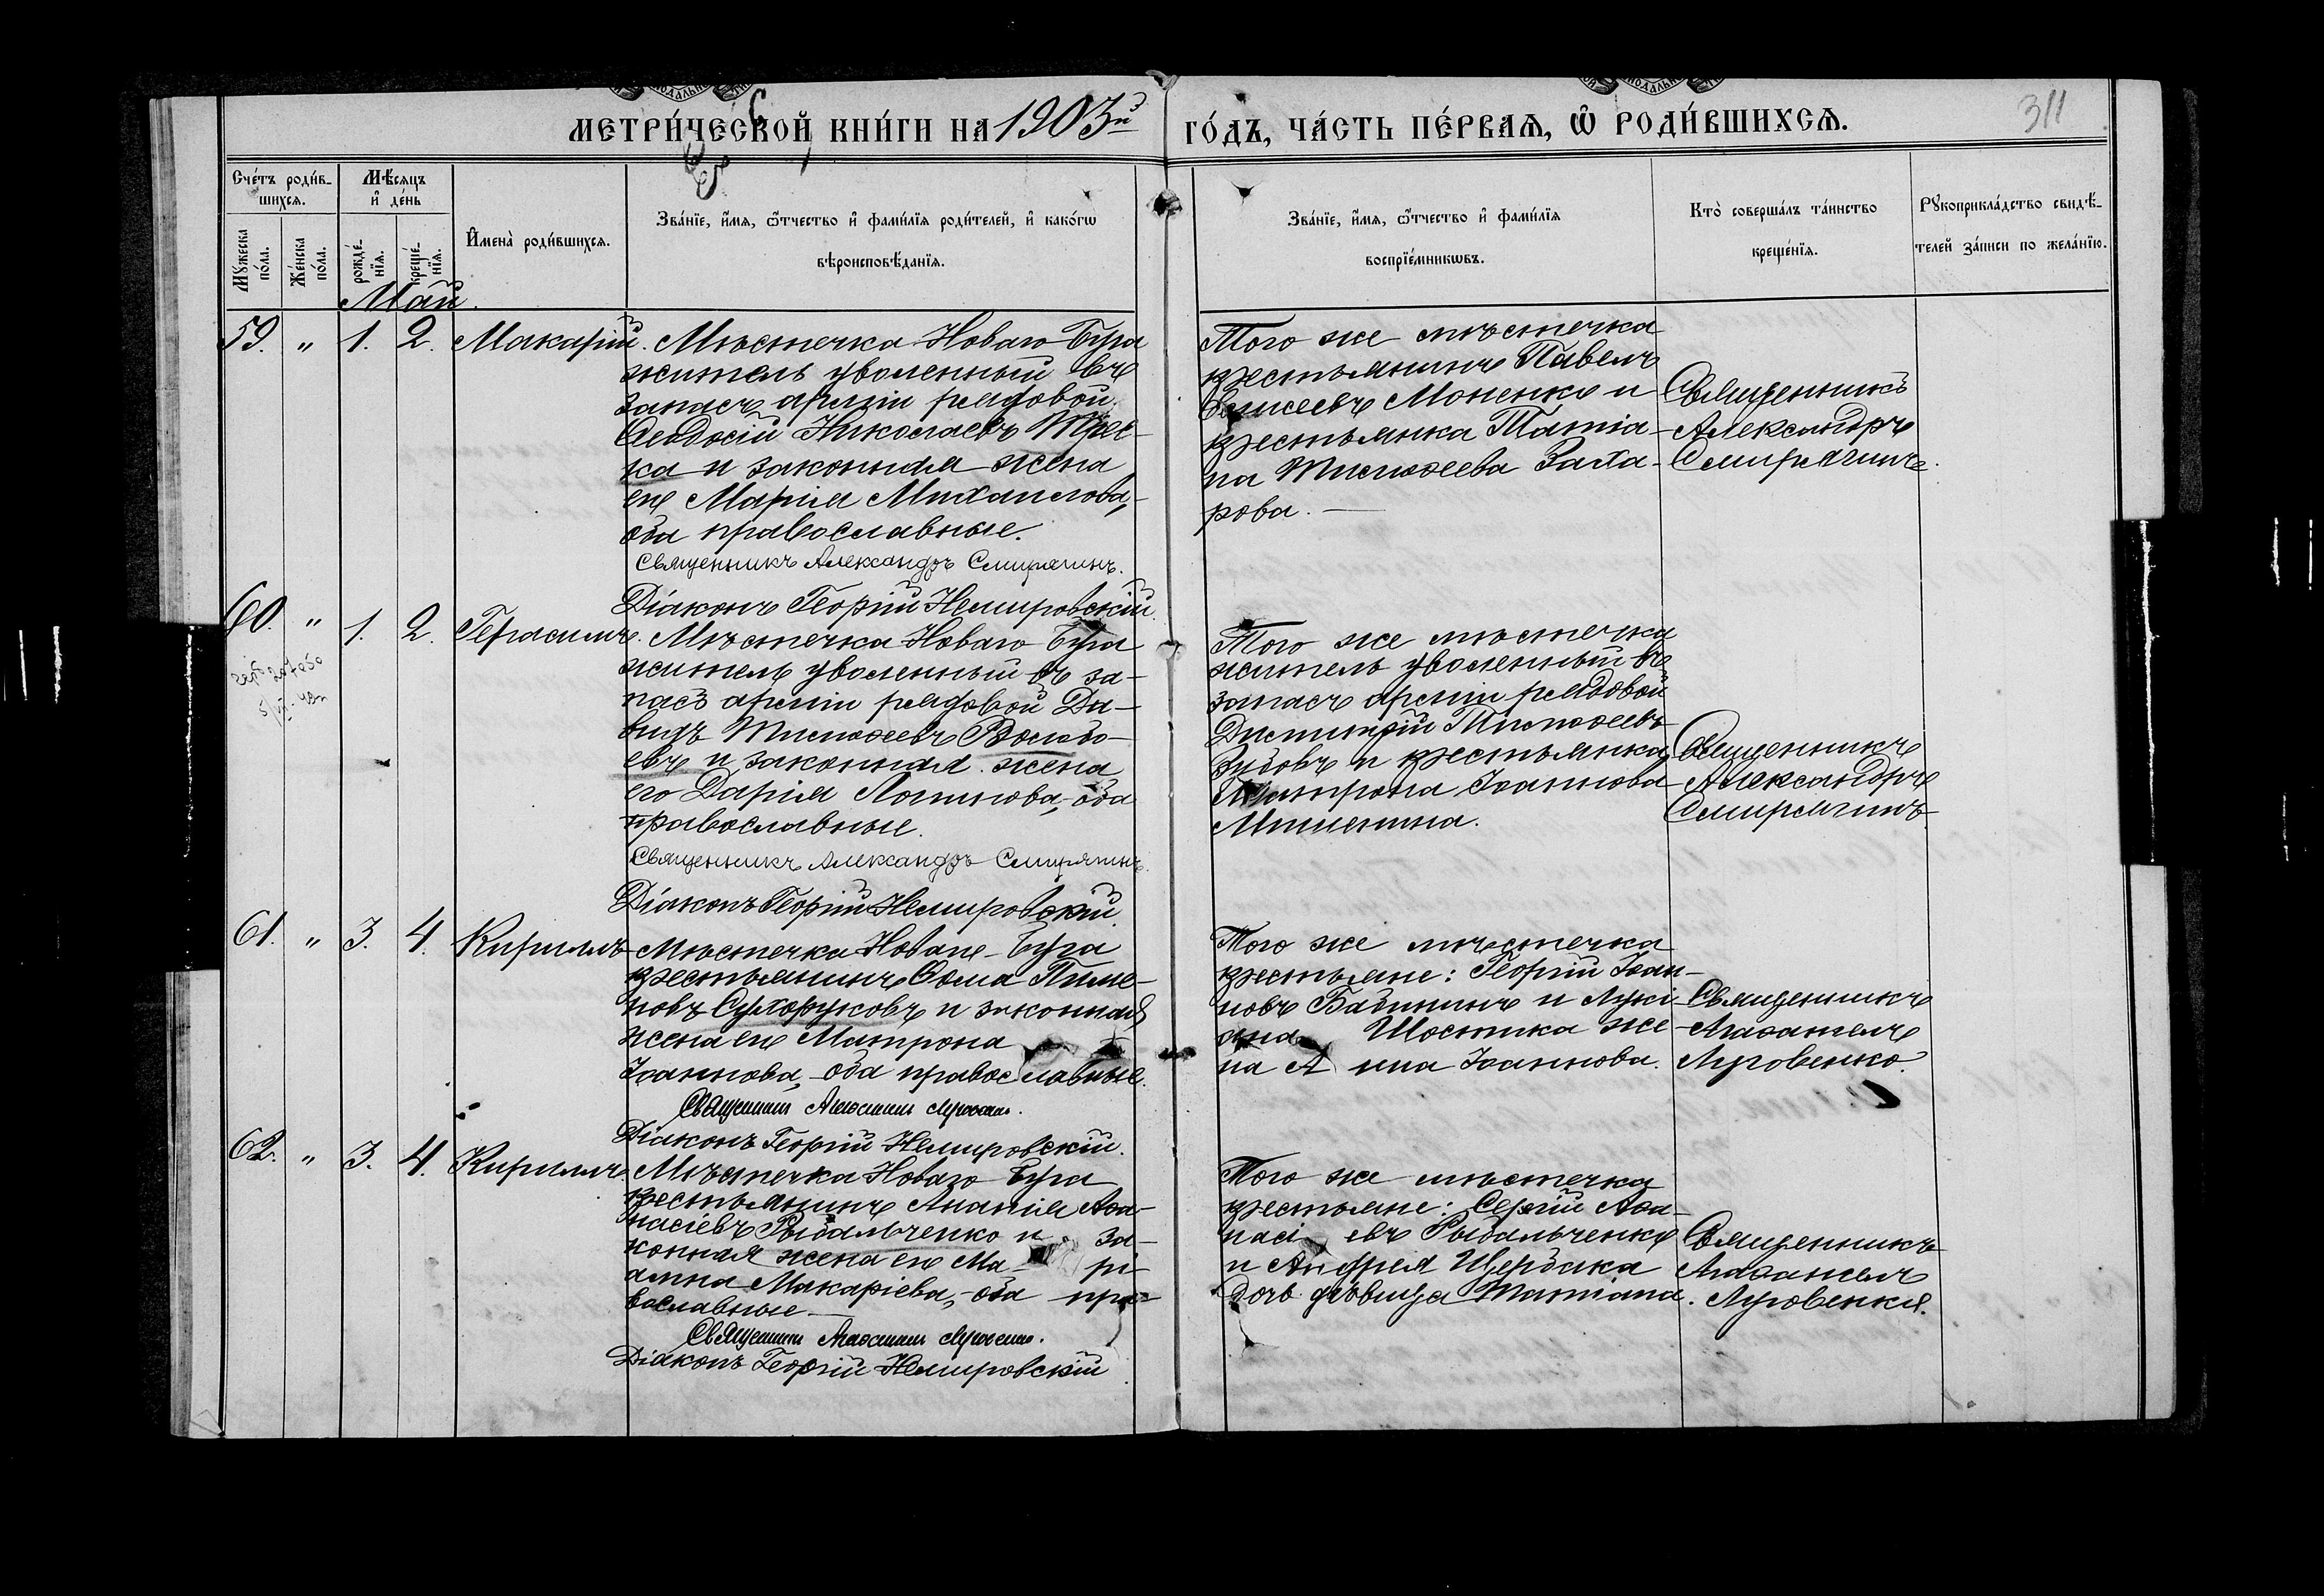 МЕТРИ́ЧЕСКОЙ КНИ́ГИ НА 1903й ГО́ДЪ, ЧА́СТЬ ПЕ́РВАѦ, Ѡ҆ РОДИ́ВШИХСѦ.
311
Сче́тъ роди́в-
шихсѧ.
Мѣ́сѧцъ
и҆ де́нь
Мꙋ́жеска по́ла.
Же́нска по́ла.
рожде́-
нїѧ.
креще́-
нїѧ.
И҆мена̀ роди́вшихсѧ.
Зва́нїе, и҆́мѧ, ѻ҆́тчество и҆ фами́лїѧ роди́телей, и҆ како́гѡ
вѣроисповѣ́данїѧ.
Зва́нїе, и҆́мѧ, ѻ҆́тчество и҆ фами́лїѧ
воспрїе́мникѡвъ.
Кто̀ соверша́лъ та́инство
креще́нїѧ.
Рꙋкоприкла́дство свидѣ́-
телей за́писи по жела́нїю.
Май.
59. " 1. 2. Макарій.
Мѣстечка Новаго Буга
житель уволенный въ
запасъ арміи рядовой
Ѳеодосій Николаевъ Трес-
ка и законная жена
его Марія Михаилова,
оба православные.
Священникъ Александръ Смирягинъ.
Діаконъ Георгій Немировскій.
Того же мѣстечка
крестьянинъ Павелъ
Елисеевъ Моненко и
крестьянка Татіа-
на Тимоѳеева Заха-
рова.
Священникъ
Александръ
Смирягинъ.
60. " 1. 2. Герасимъ.
Мѣстечка Новаго Буга
житель уволенный въ за-
пасъ арміи рядовой Да-
видъ Тимоѳеевъ Волобо-
евъ и законная жена
его Дарія Логинова, оба
православные.
Священникъ Александръ Смирягинъ.
Діаконъ Георгій Немировскій.
Того же мѣстечка
житель уволенный въ
запасъ арміи рядовой
Димитрій Тимоѳеевъ
Зубовъ и крестьянка
Матрона Іоаннова
Мишенина.
Священникъ
Александръ
Смирягинъ
61. " 3. 4. Кириллъ
Мѣстечка Новаго Буга
крестьянинъ Ѳома Пиме-
новъ Сухоруковъ и законная
жена его Матрона
Іоаннова, оба православные.
Священникъ
Діаконъ Георгій Немировскій.
Того же мѣстечка
крестьяне: Георгій Іоан-
новъ Бабининъ и Лукі-
ана Шостика же-
на Анна Іоаннова.
Священникъ
Агаѳангелъ
Луговенко.
62. " 3. 4. Кириллъ.
Мѣстечка Новаго Буга
крестьянинъ Ананія Аѳа-
насіевъ Рыбальченко и за-
конная жена его Ма-рі-
амна Макаріева, оба пра-
вославные
Священникъ
Діаконъ Георгій Немировскій
Того же мѣстечка
крестьяне: Сергій Аѳа-
насіевъ Рыбальченко
и Андрея Щербака
дочь дѣвица Татіана.
Священникъ
Агаѳангелъ
Луговенко.